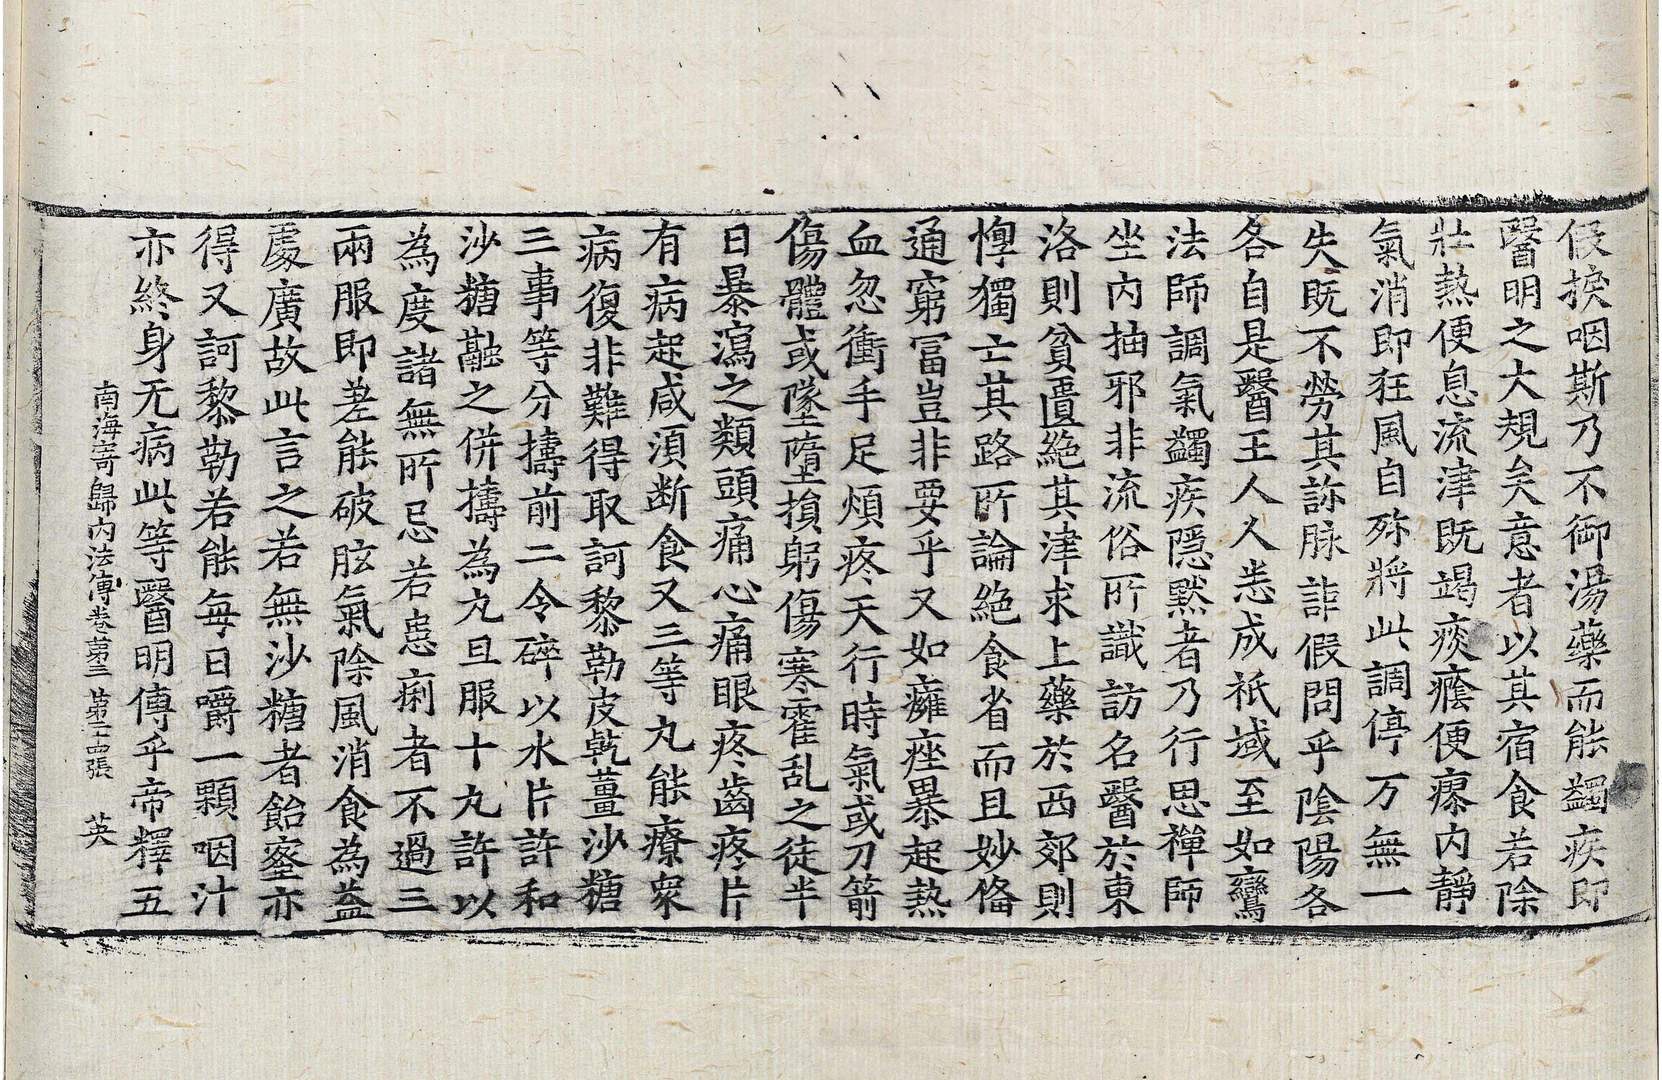 假捩咽斯乃不御湯藥而能蠲疾即
醫明之大規矣意者以其宿食若除
壯熱便息流津既竭痰癊便瘳内靜
氣消即狂風自殄將此調停万無一
失既不勞其診脉詎假問乎陰陽各
各自是醫王人人悉成祇域至如鸞
法師調氣蠲疾隱默者乃行思禪師
坐内抽邪非流俗所識訪名醫於東
洛則貧匱絶其津求上藥於西郊則
惸獨亡其路所論絶食省而且妙俻
通窮冨豈非要乎又如癰痤暴起熱
血忽衝手足煩疼天行時氣或刀箭
傷體或墜墮損躬傷寒霍乱之徒半
日暴瀉之類頭痛心痛眼疼齒疼片
有病起咸須断食又三等丸能療衆
病復非難得取訶黎勒皮乾薑沙糖
三事等分擣前二令碎以水片許和
沙糖融之併擣為丸旦服十丸許以
為度諸無所忌若患痢者不過三
兩服即差能破胘氣除風消食為益
處廣故此言之若無沙糖者飴蜜亦
得又訶黎勒若能每日嚼一顆咽汁
亦終身无病此等醫明傳乎帝釋五
南海寄歸内法傳卷第三 第二十四張 英